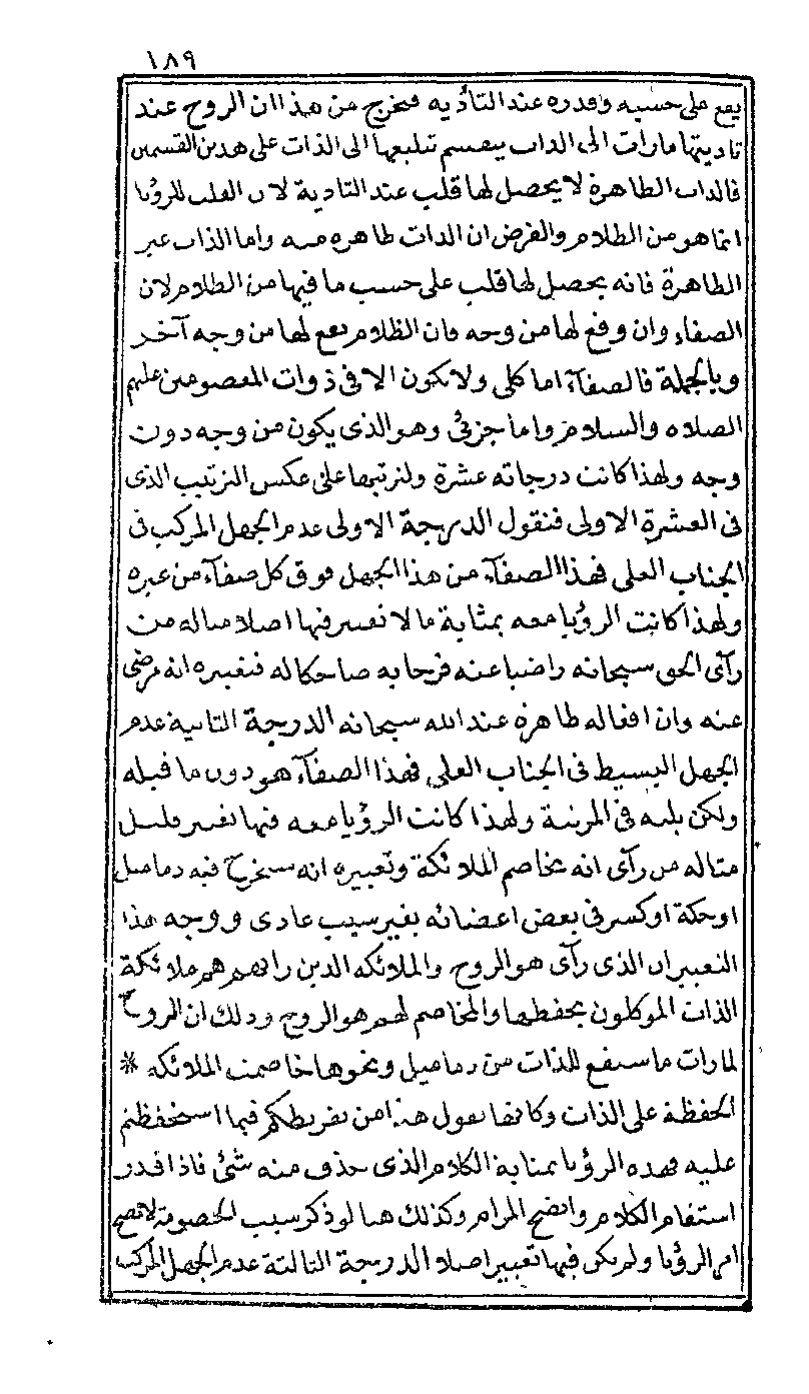 ١٨٩
يقع على حسبه وقدره عند التأدية فيخرج من هذا ان الروح عند
تاديتها ما رات الى الذات ينقسم تبليغها الى الذات على هذين القسمين
فالذات الطاهرة لا يحصل لها قلب عند التادية لان القلب للرؤيا
انما هو من الظلام والفرض ان الذات طاهره منه واما الذات غير
الطاهرة فانه يحصل لها قلب على حسب ما فيها من الظلام لان
الصفاء وان وقع لها من وجه فان الظلام يقع لها من وجه آخر
وبالجملة فالصفآء اما كلى ولا يكون الا فى ذوات المعصومين عليهم
الصلاه والسلام واما جزئى وهو الذى يكون من وجه دون
وجه ولهذا كانت درجاته عشرة ولنرتبها على عكس الترتيب الذى
فى العشرة الاولى فنقول الدرجة الاولى عدم الجهل المركب فى
الجناب العلى فهذا الصفآء من هذا الجهل فوق كل صفآء من غيره
ولهذا كانت الرؤيا معه بمثابة ما لا تفسير فيها اصلا مثاله من
رآى الحق سبحانه راضيا عنه فرحا به ضاحكا له فتعبيره انه مرضى
عنه وان افعاله طاهرة عند الله سبحانه الدرجة الثانية عدم
الجهل البسيط فى الجناب العلى فهذا الصفآء هو دون ما قبله
ولكن يليه فى المرتبة ولهذا كانت الرؤيا معه فيها تفسير قليل
مثاله من رآى انه يخاصم الملائكة وتعبيره انه سيخرج فيه دماميل
او حكة او كسر فى بعض اعضائه بغير سبب عادى ووجه هذا
التعبير ان الذى رآى هو الروح والملائكه الذين راتهم هم ملائكة
الذات الموكلون بحفظها والمخاصم لهم هو الروح وذلك ان الروح
لما رات ما سيقع للذات من دماميل ونحوها خاصمت الملائكه *
الحفظة على الذات وكانها تقول هذا من تفريطكم فيما استحفظتم
عليه فهذه الرؤيا بمثابة الكلام الذى حذف منه شئ فاذا قدر
استقام الكلام واتضح المرام وكذلك هنا لو ذكر سبب الخصومة لاتضح
امر الرؤيا ولم يكن فيها تعبير اصلا الدرجة الثالثة عدم الجهل المركب